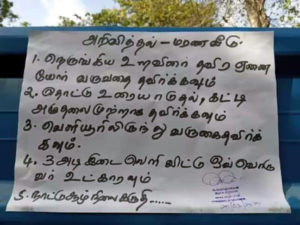 அறிவித்தல் - மரணவீடு
1. நெருங்கிய உறவினர் தவிர ஏனை
யோர் வருவதை தவிர்க்கவும்
2. தொட்டு உரையாடுதல், கட்டி
அழுதலை முற்றாக தவிர்க்கவும்
3. வெளியூரிலிருந்து வருகைதவிர்க்
கவும்.
4. 3 அடி இடைவெளி விட்டு ஒவ்வொரு
வர் உட்காரவும்
5. நாட்டுசூழ்நிலைகருதி.....